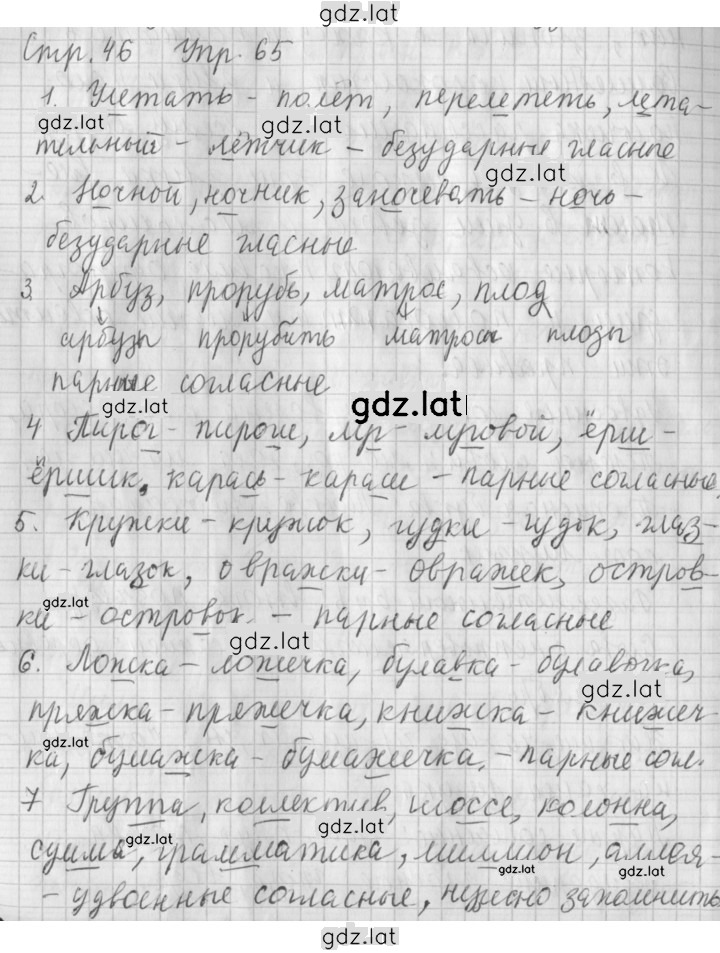 gdz.lat
Стр. 46 Упр. 65
1. Улетать – полёт, перелететь, лета-
gdz.lat gdz.lat
тельный – лётчик – безударные гласные
gdz.lat
2. Ночной, ночник, заночевать – ночь –
безударные гласные
gdz.lat gdz.lat
3. Арбуз, прорубь, матрос, плод
арбузы прорубить матросы плоды
парные согласные
gdz.lat gdz.lat
4 Пирог – пироги, луг – луговой, ёрш –
ёршик, карась – караси – парные согласные
gdz.lat gdz.lat
5. Кружки – кружок, гудки – гудок, глаз-
ки – глазок, овражки – овражек, остров-
gdz.lat
ки – островок – парные согласные
gdz.lat
6. Ложка – ложечка, булавка – булавочка,
gdz.lat
пряжка – пряжечка, книжка – книжеч-
gdz.lat
ка, бумажка – бумажечка – парные согл.
7 Группа, коллектив, шоссе, колонна,
gdz.lat
gdz.lat
сумма, грамматика, миллион, аллея –
gdz.lat gdz.lat
– удвоенные согласные, нужно запомнить
gdz.lat